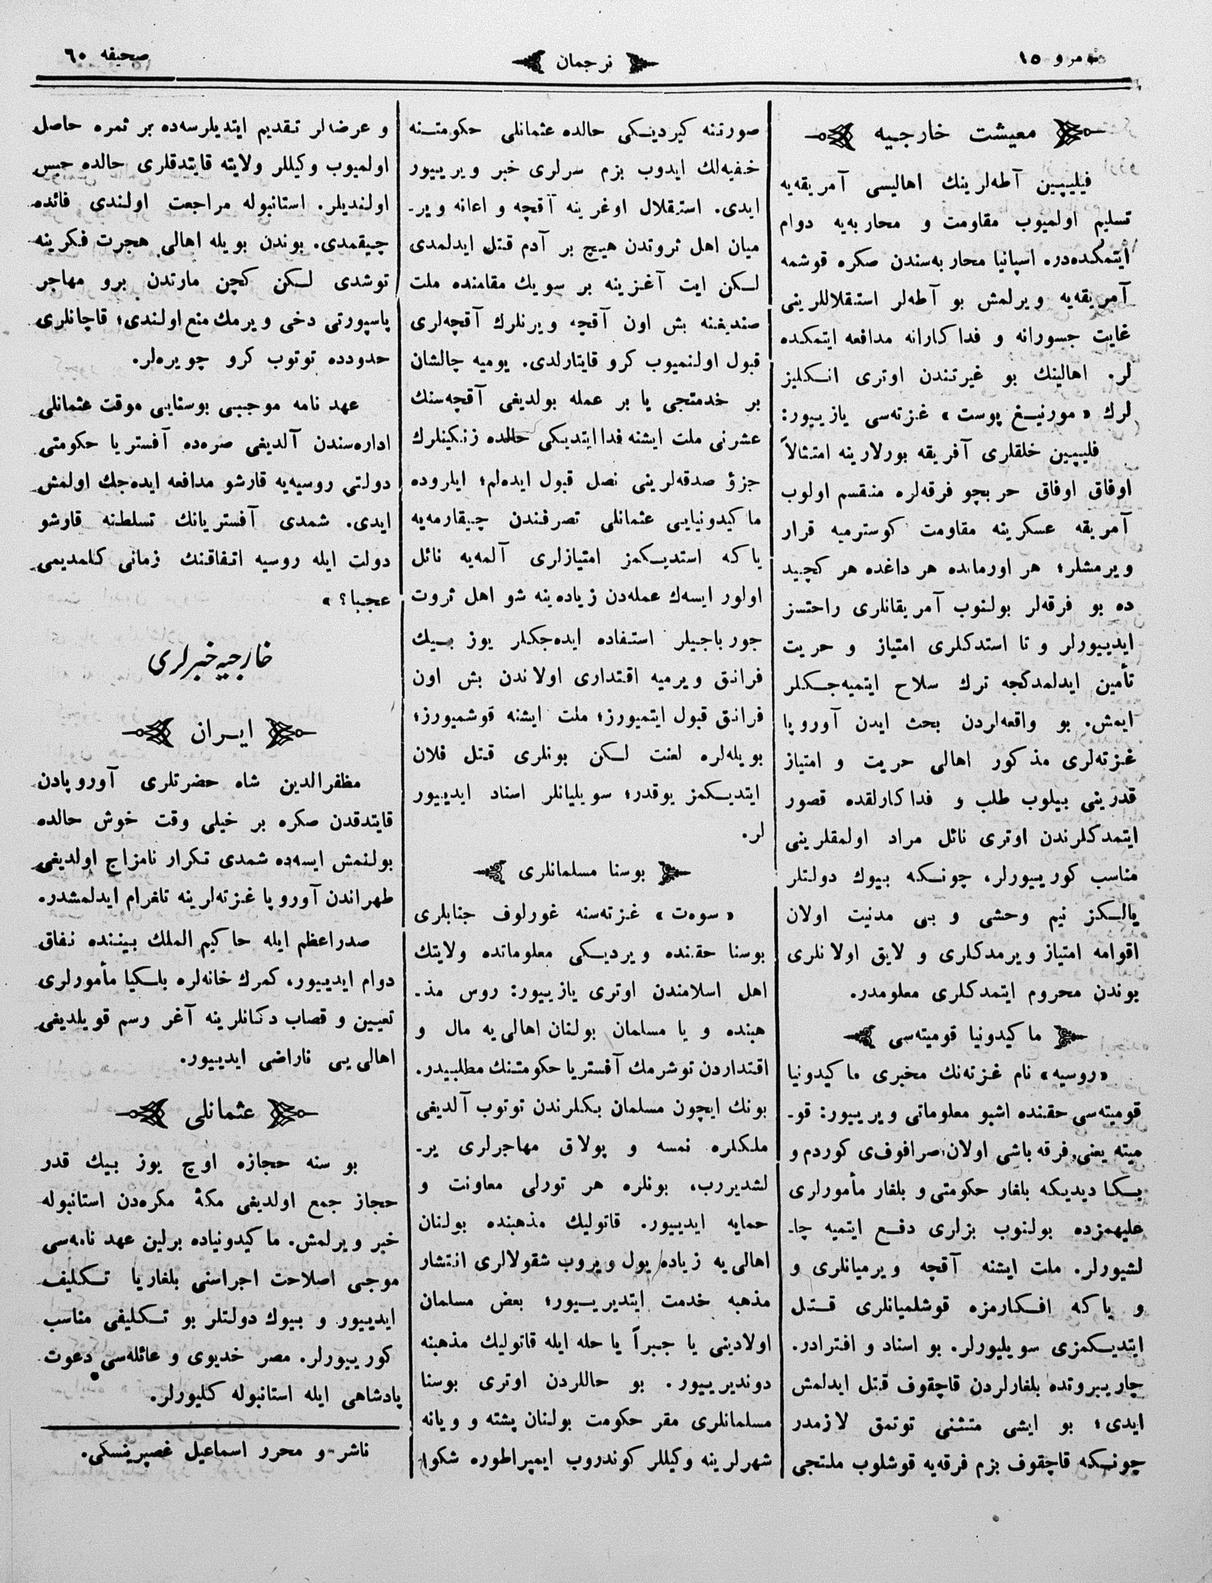 نومرو ۱۵
ترجمان
صحیفه ٦٠
معیشت خارجیه
فیلیپین آطه‌لرینك اهالیسی آمریقه‌یه
تسلیم اولمیوب مقاومت و محاربه‌یه دوام
ایتمکده‌دره اسپانیا محاربه‌سندن صکره قوشمه
آمریقه‌یه ویرلمش بو آطه‌لر استقلاللرینی
غایت جسورانه و فداکارانه مدافعه ایتمکده
لر. اهالینك بو غیرتندن اوتری انکلیز
لرك «مورنیغ پوست» غزته‌سی یازییور:
فلیپین خلقلری آفریقه بورلارینه امتثالاً
اوفاق اوفاق حربچو فرقه‌لره منقسم اولوب
آمریقه عسکرینه مقاومت کوسترمیه قرار
ویرمشلر؛ هر اورمانده هر داغده هر کچید
ده بو فرقه‌لر بولنوب آمریقانلری راحتسز
ایدییورلر و تا استدکلری امتیاز و حریت
تأمین ایدلمدکجه ترك سلاح ایتمیه‌جکلر
ایمش. بو واقعه‌لردن بحث ایدن آوروپا
غزته‌لری مذکور اهالی حریت و امتیاز
قدرینی بیلوب طلب و فداکارلقده قصور
ایتمدکلرندن اوتری نائل مراد اولمقلرینی
مناسب کورییورلر، چونکه بیوك دولتلر
یالکز نیم وحشی و بی مدنیت اولان
اقوامه امتیاز ویرمدکلری و لایق اولانلری
بوندن محروم ایتمدکلری معلومدر.
ماکیدونیا قومیته‌سی
«روسیه» نام غزته‌نك مخبری ماکیدونیا
قومیته‌سی حقنده اشبو معلوماتی ویرییور: قو-
میته یعنی فرقه باشی اولان صرافوف‌ی کوردم و
بکا دیدیکه بلغار حکومتی و بلغار مأمورلری
علیهمزده بولنوب بزلری دفع ایتمیه چا-
لشیورلر. ملت ایشنه آقچه ویرمیانلری و
و یاکه افکارمزه قوشلمیانلری قتل
ایتدیکمزی سویلیورلر. بو اسناد و افترادر.
چارییروتده بلغارلردن قاچقوف قتل ایدلمش
ایدی؛ بو ایشی متثنی توتمق لازمدر
چونکه قاچقوف بزم فرقه‌یه قوشلوب ملتجی
صورتنه کیردیکی حالده عثمانلی حکومتنه
خفیه‌لك ایدوب بزم سرلری خبر ویرییور
ایدی. استقلال اوغرینه آقچه و اعانه ویر-
میان اهل ثروتدن هیچ بر آدم قتل ایدلمدی
لکن ایت آغزینه بر سویك مقامنده ملت
صندیغنه بش اون آقچه ویرنلرك آقچه‌لری
قبول اولنمیوب کرو قایتارلدی. یومیه چالشان
بر خدمتجی یا بر عمله بولدیغی آقچه‌سنك
عشرنی ملت ایشنه فدا ایتدیکی حالده زنکینلرك
جزؤ صدقه‌لرینی نصل قبول ایده‌لم؛ ایلروده
ماکیدونیایی عثمانلی تصرفندن چیقارمه‌یه
یاکه استدیکمز امتیازلری آلمه‌یه نائل
اولور ایسه‌ك عمله‌دن زیاده‌ینه شو اهل ثروت
جورباجیلر استفاده ایده‌جکلر یوز بیك
فرانق ویرمیه اقتداری اولاندن بش اون
فرانق قبول ایتمیورز؛ ملت ایشنه قوشمیورز؛
بویله‌لره لعنت لکن بونلری قتل فلان
ایتدیکمز یوقدر؛ سویلیانلر اسناد ایدییور
لر.
بوسنا مسلمانلری
«سوه‌ت» غزته‌سنه غورلوف جنابلری
بوسنا حقنده ویردیکی معلوماتده ولایتك
اهل اسلامندن اوتری یازییور: روس مذ-
هبنده و یا مسلمان بولنان اهالی‌یه مال و
اقتداردن توشرمك آفستریا حکومتنك مطلبیدر.
بونك ایچون مسلمان بکلرندن توتوب آلدیغی
ملکلره نمسه و پولاق مهاجرلری یر-
لشدیررب، بونلره هر تورلی معاونت و
حمایه ایدییور. قاتولیك مذهبنده بولنان
اهالی‌یه زیاده یول ویروب شقولالری انتشار
مذهبه خدمت ایتدیرییور؛ بعض مسلمان
اولادینی یا جبراً یا حله ایله قاتولیك مذهبنه
دوندیرییور. بو حاللردن اوتری بوسنا
مسلمانلری مقر حکومت بولنان پشته و ویانه
شهرلرینه وکیللر کوندروب ایمپراطوره شکوا
و عرضه‌لر تقدیم ایتدیلرسه‌ده بر ثمره حاصل
اولمیوب وکیللر ولایته قایتدقلری حالده حبس
اولندیلر. استانبوله مراجعت اولندی فائده
چیقمدی. بوندن بویله اهالی هجرت فکرینه
توشدی لکن کچن مارتدن برو مهاجر
پاسپورتی دخی ویرمك منع اولندی؛ قاچانلری
حدودده توتوب کرو چویره‌لر.
عهد نامه موجبی بوسنایی موقت عثمانلی
اداره‌سندن آلدیغی صره‌ده آفستریا حکومتی
دولتی روسیه‌یه قارشو مدافعه ایده‌جك اولمش
ایدی. شمدی آفستریانك تسلطنه قارشو
دولت ایله روسیه اتفاقنك زمانی کلمدیمی
عجبا؟ »
خارجیه خبرلری
ایران
مظفرالدین شاه حضرتلری آوروپادن
قایتدقدن صکره بر خیلی وقت خوش حالده
بولنمش ایسه‌ده شمدی تکرار نامزاج اولدیغی
طهراندن آوروپا غزته‌لرینه تلغرام ایدلمشدر.
صدراعظم ایله حاکیم الملك بیننده نفاق
دوام ایدییور، کمرك خانه‌لره بلکیا مأمورلری
تعیین و قصاب دکانلرینه آغر رسم قویلدیغی
اهالی‌یی ناراضی ایدییور.
عثمانلی
بو سنه حجازه اوچ یوز بیك قدر
حجاز جمع اولدیغی مکهٔ مکره‌دن استانبوله
خبر ویرلمش. ماکیدونیاده برلین عهد نامه‌سی
موجی اصلاحت اجراسنی بلغاریا تکلیف
ایدییور و بیوك دولتلر بو تکلیفی مناسب
کورییورلر. مصر خدیوی و عائله‌سی دعوت
پادشاهی ایله استانبوله کلیورلر.
ناشر و محرر اسماعیل غصپرینسکی.